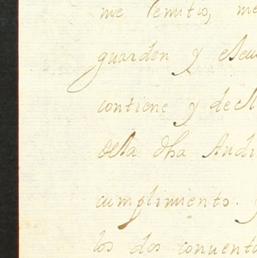 me remitio, me
guarden y
contiene y decl
della dha Audi
cumplimiento.
los dos convento